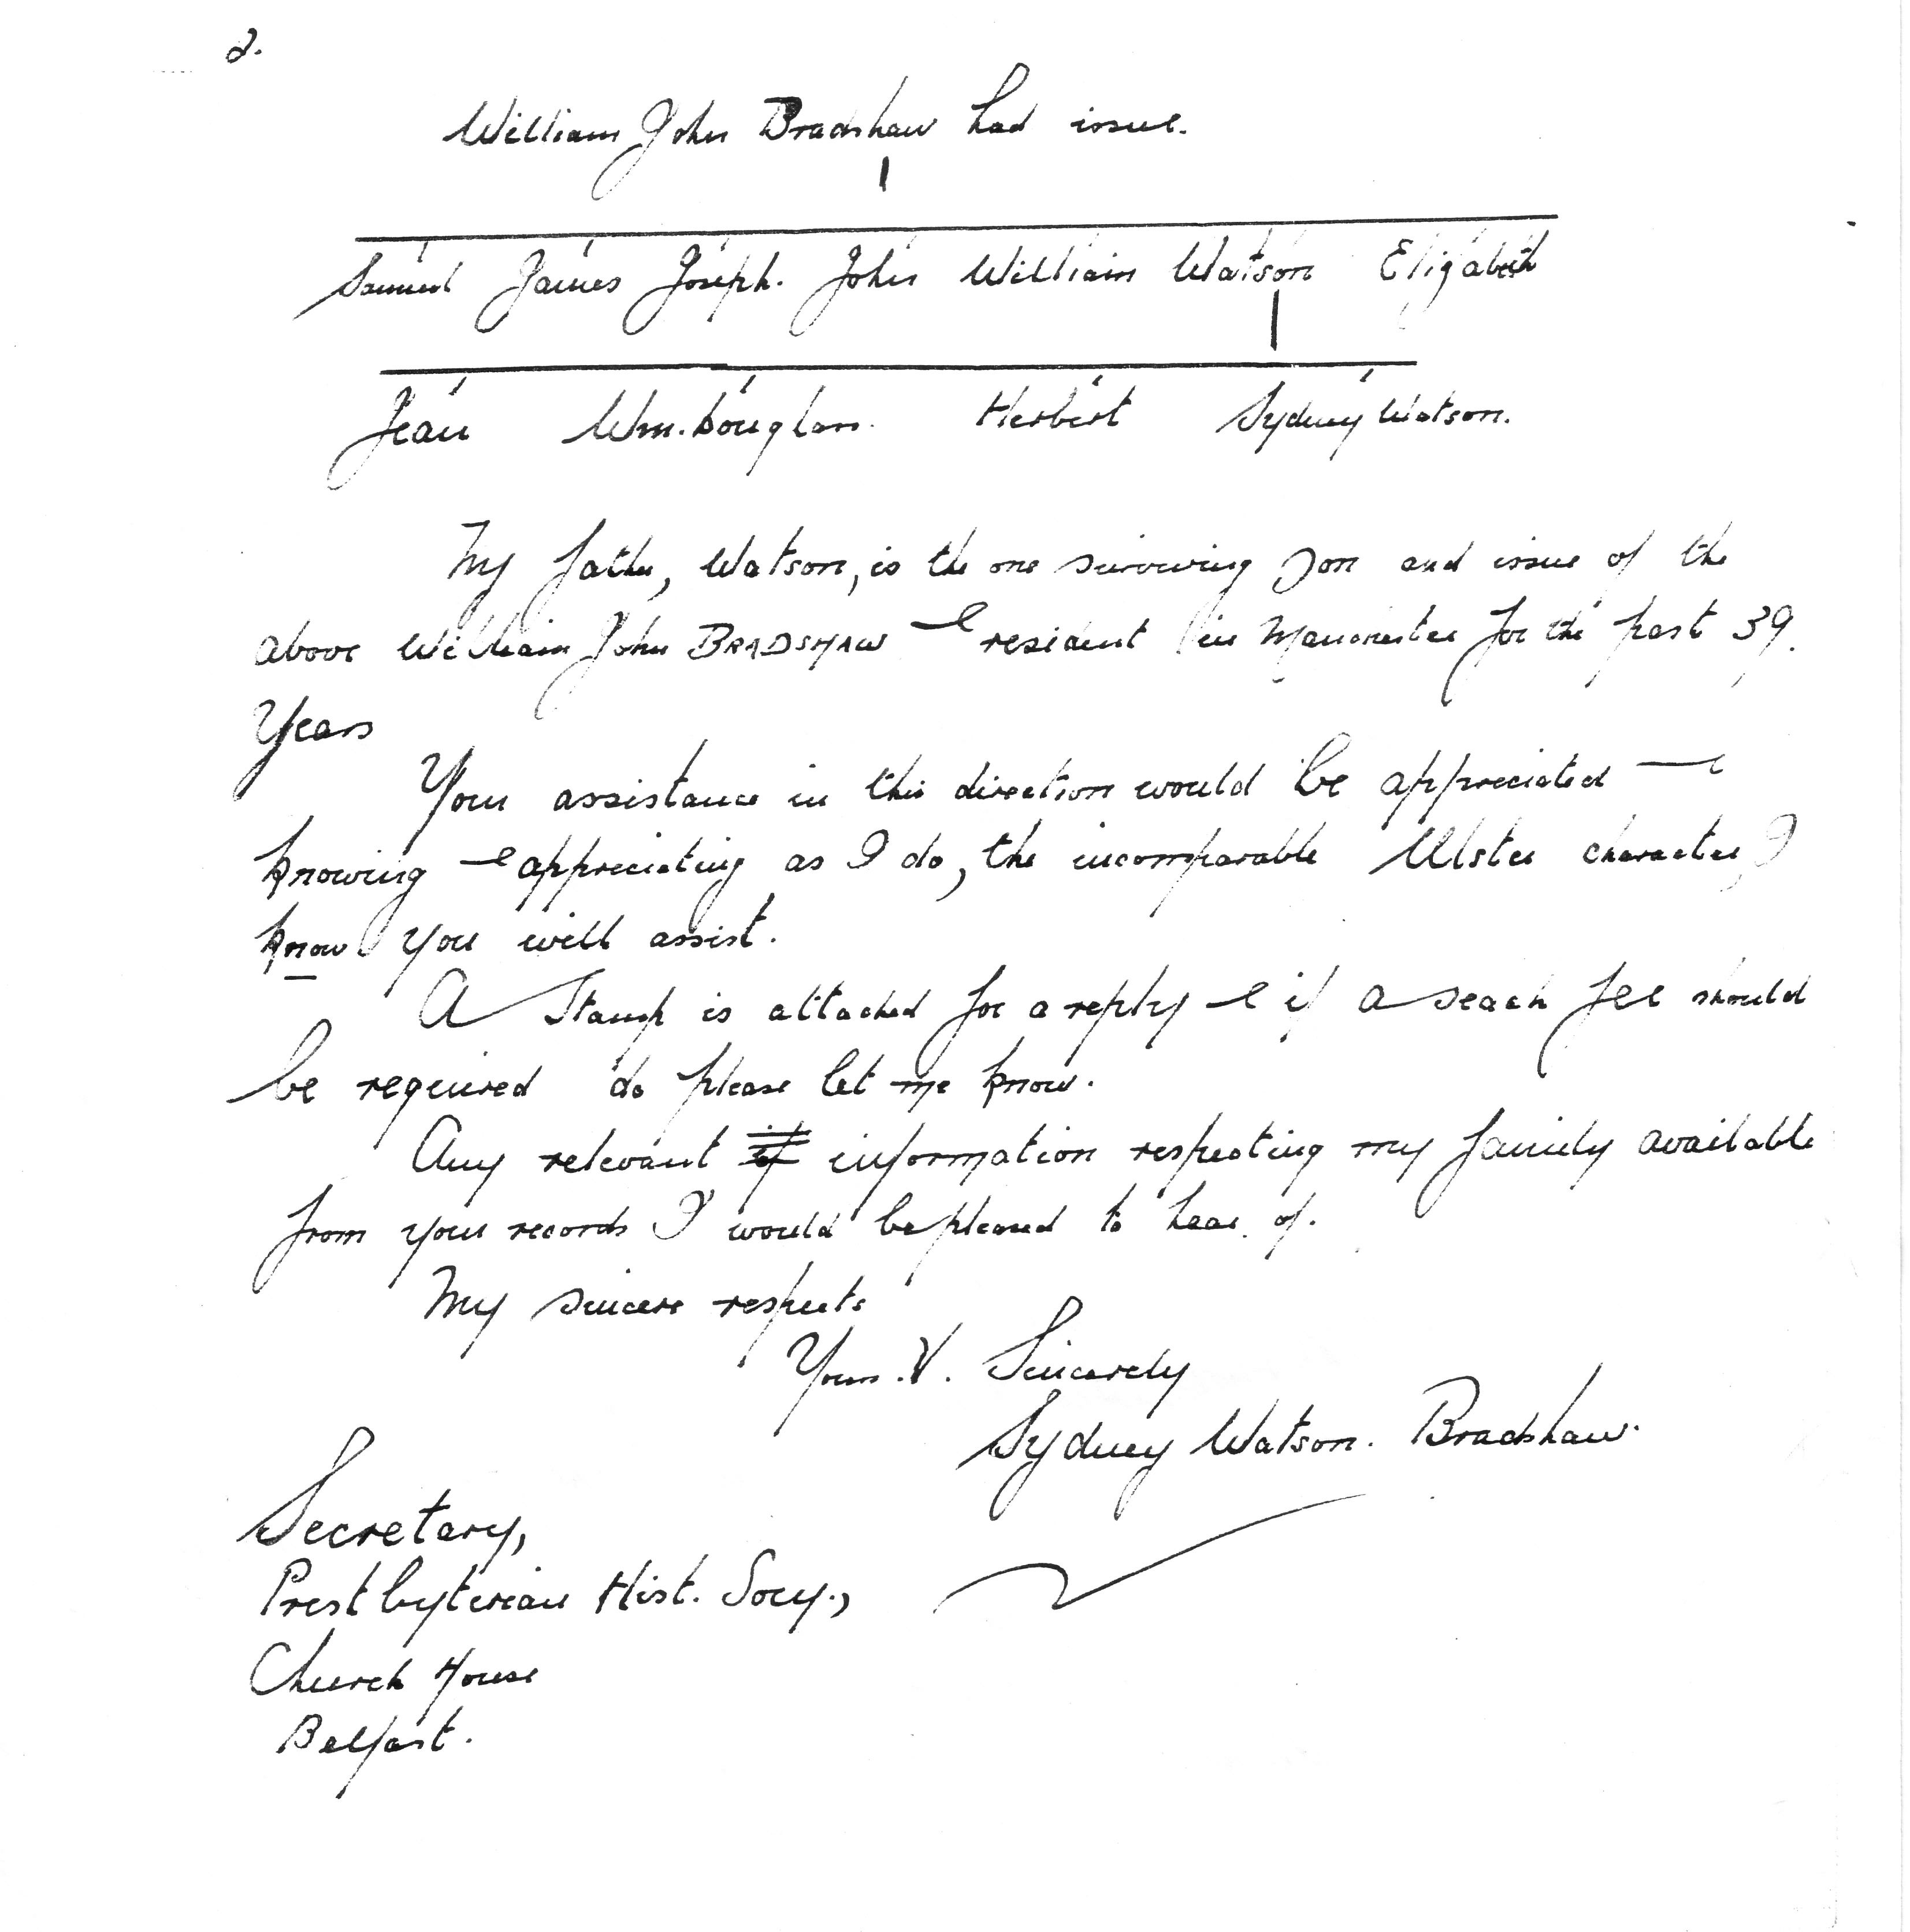 2.
William John Bradshaw had issue.
Samuel James Joseph. John William Watson Elizabeth
Jean Wm. Douglas. Herbert Sydney Watson.
My father, Watson, is the one surviving son and issue of the
above William John BRADSHAW & resident in Manchester for the past 39.
Years
Your assistance in this direction would be appreciated &
knowing & appreciating as I do, the incomparable Ulster character, I
know you will assist.
A Stamp is attached for a reply & if a seach fee should
be required do please let me know.
Any relevant if information respecting my family available
from your records I would be pleased to hear of.
My sincere respects
Yours. V. Sincerely
Sydney Watson. Bradshaw.
Secretary,
Prestbyterian Hist. Socy.,
Church House
Belfast.